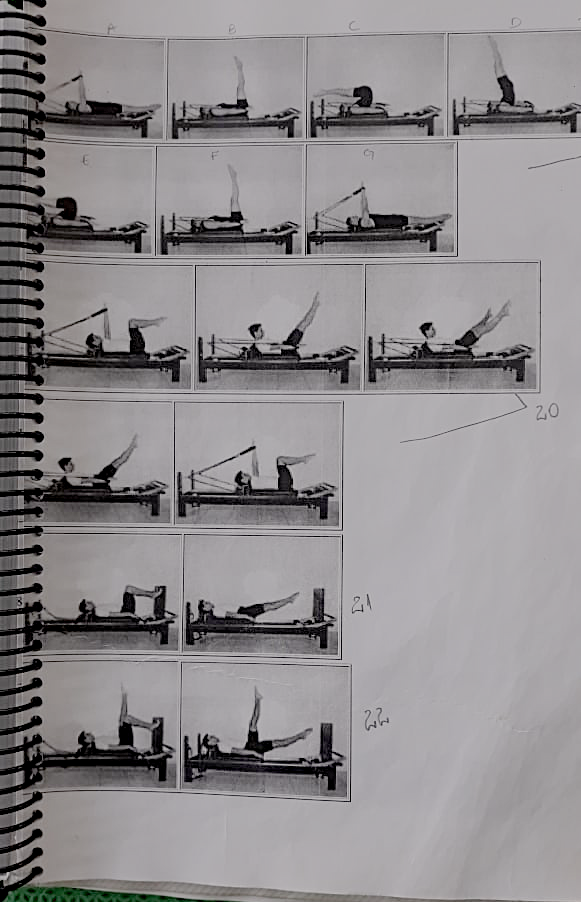 A B C D
E F G
20
21
22